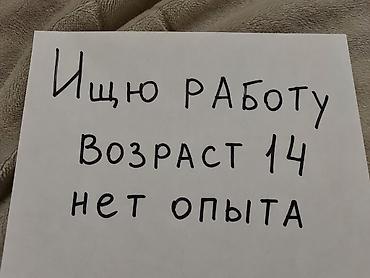 Ищю РАБОТУ
ВОЗРАСТ 14
НЕТ ОПЫТА